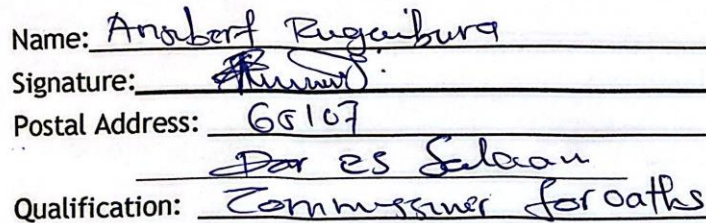 Name: Anorbert Rugaibura
Signature:
Postal Address: 65107
Dar es Salaam
Qualification: Commissioner for oaths